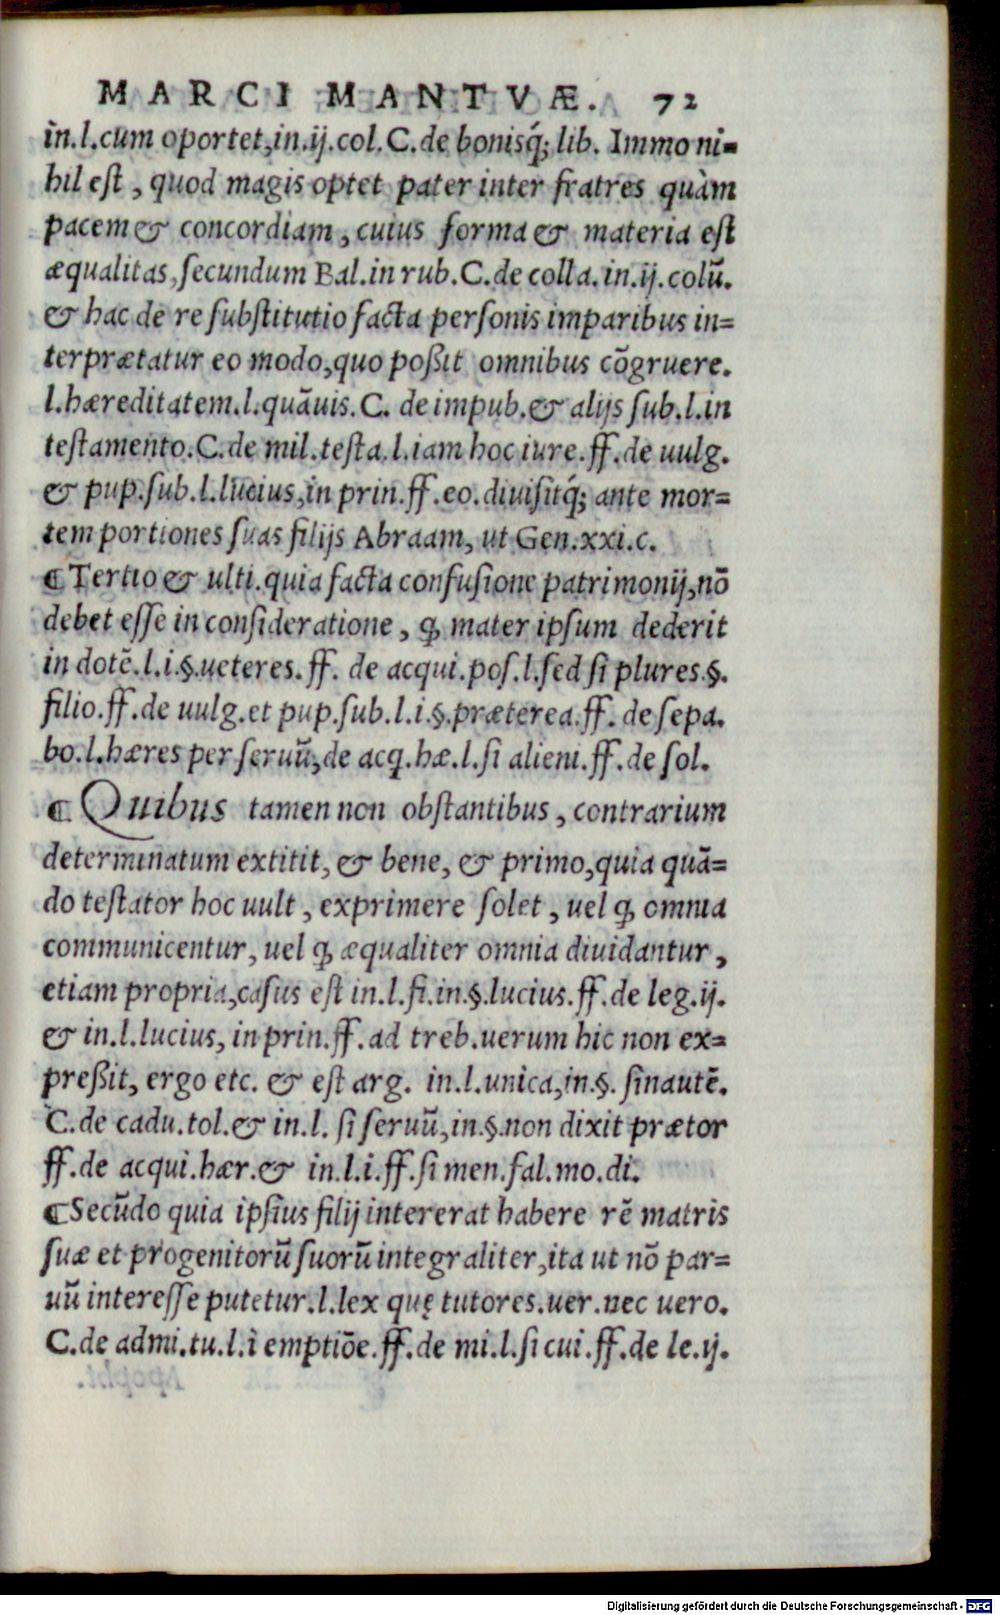 MARCI MANTVÆ. 72
in.l.cum oportet,in.ij.col.C.de bonisq́; lib. Immo ni=
hil est, quod magis optet pater inter fratres quàm
pacem & concordiam, cuius forma & materia est
æqualitas, secundum Bal.in rub.C.de colla.in.ij.colū.
& hac de re substitutio facta personis imparibus in=
terprætatur eo modo,quo poßit omnibus cōgruere.
l.hæreditatem.l.quāuis.C. de impub.& alijs sub.l.in
testamento.C.de mil.testa.l.iam hoc iure.ff.de uulg.
& pup.sub.l.lucius,in prin.ff.eo.diuisitq́; ante mor=
tem portiones suas filijs Abraam, ut Gen.xxi.c.
¶Tertio & ulti.quia facta confusione patrimonij,nō
debet esse in consideratione, ꝙ mater ipsum dederit
in dotē.l.i.§.ueteres.ff. de acqui.pos.l.sed si plures.§.
filio.ff.de uulg.et pup.sub.l.i.§.præterea.ff. de sepa.
bo.l.hæres per seruū,de acq.hæ.l.si alieni.ff.de sol.
¶ Quibus tamen non obstantibus, contrarium
determinatum extitit, & bene, & primo,quia quā=
do testator hoc uult, exprimere solet, uel ꝙ omnia
communicentur, uel ꝙ æqualiter omnia diuidantur,
etiam propria,casus est in.l.fi.in.§.lucius.ff.de leg.ij.
& in.l.lucius, in prin.ff.ad treb.uerum hic non ex=
preßit, ergo etc. & est arg. in.l.unica,in.§. sinautē.
C.de cadu.tol.& in.l. si seruū,in.§.non dixit prætor
ff.de acqui.hær.& in.l.i.ff.si men.fal.mo.di.
¶Secūdo quia ipsius filij intererat habere rē matris
suæ et progenitorū suorū integraliter,ita ut nō par=
uū interesse putetur.l.lex quę tutores.uer.nec uero.
C.de admi.tu.l.i emptiōe.ff.de mi.l.si cui.ff.de le.ij.
Digitalisierung gefördert durch die Deutsche Forschungsgemeinschaft - DFG